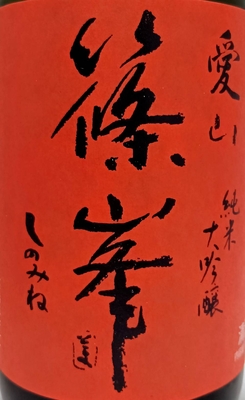 愛山
純米大吟醸
篠峯
しのみね